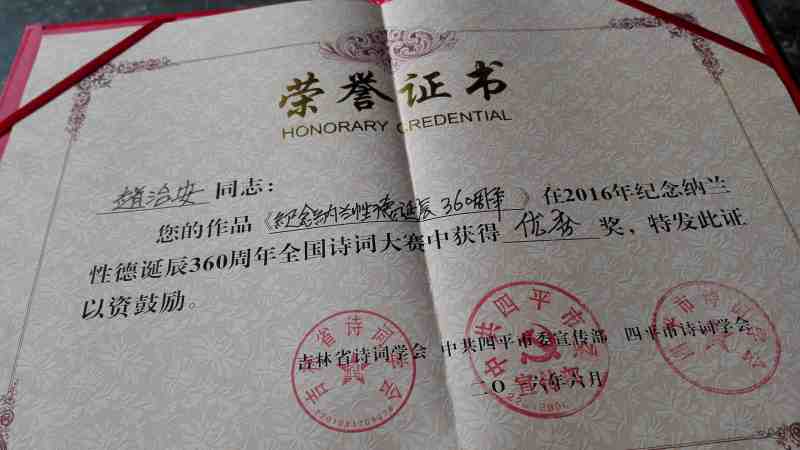 荣誉证书
HONORARY CREDENTIAL
趙治安 同志：
您的作品《紀念纳兰性德诞辰360周年》在2016年纪念纳兰
性德诞辰360周年全国诗词大赛中获得 优秀 奖，特发此证
以资鼓励。
吉林省诗词学会 中共四平市委宣传部 四平市诗词学会
二〇一六年六月